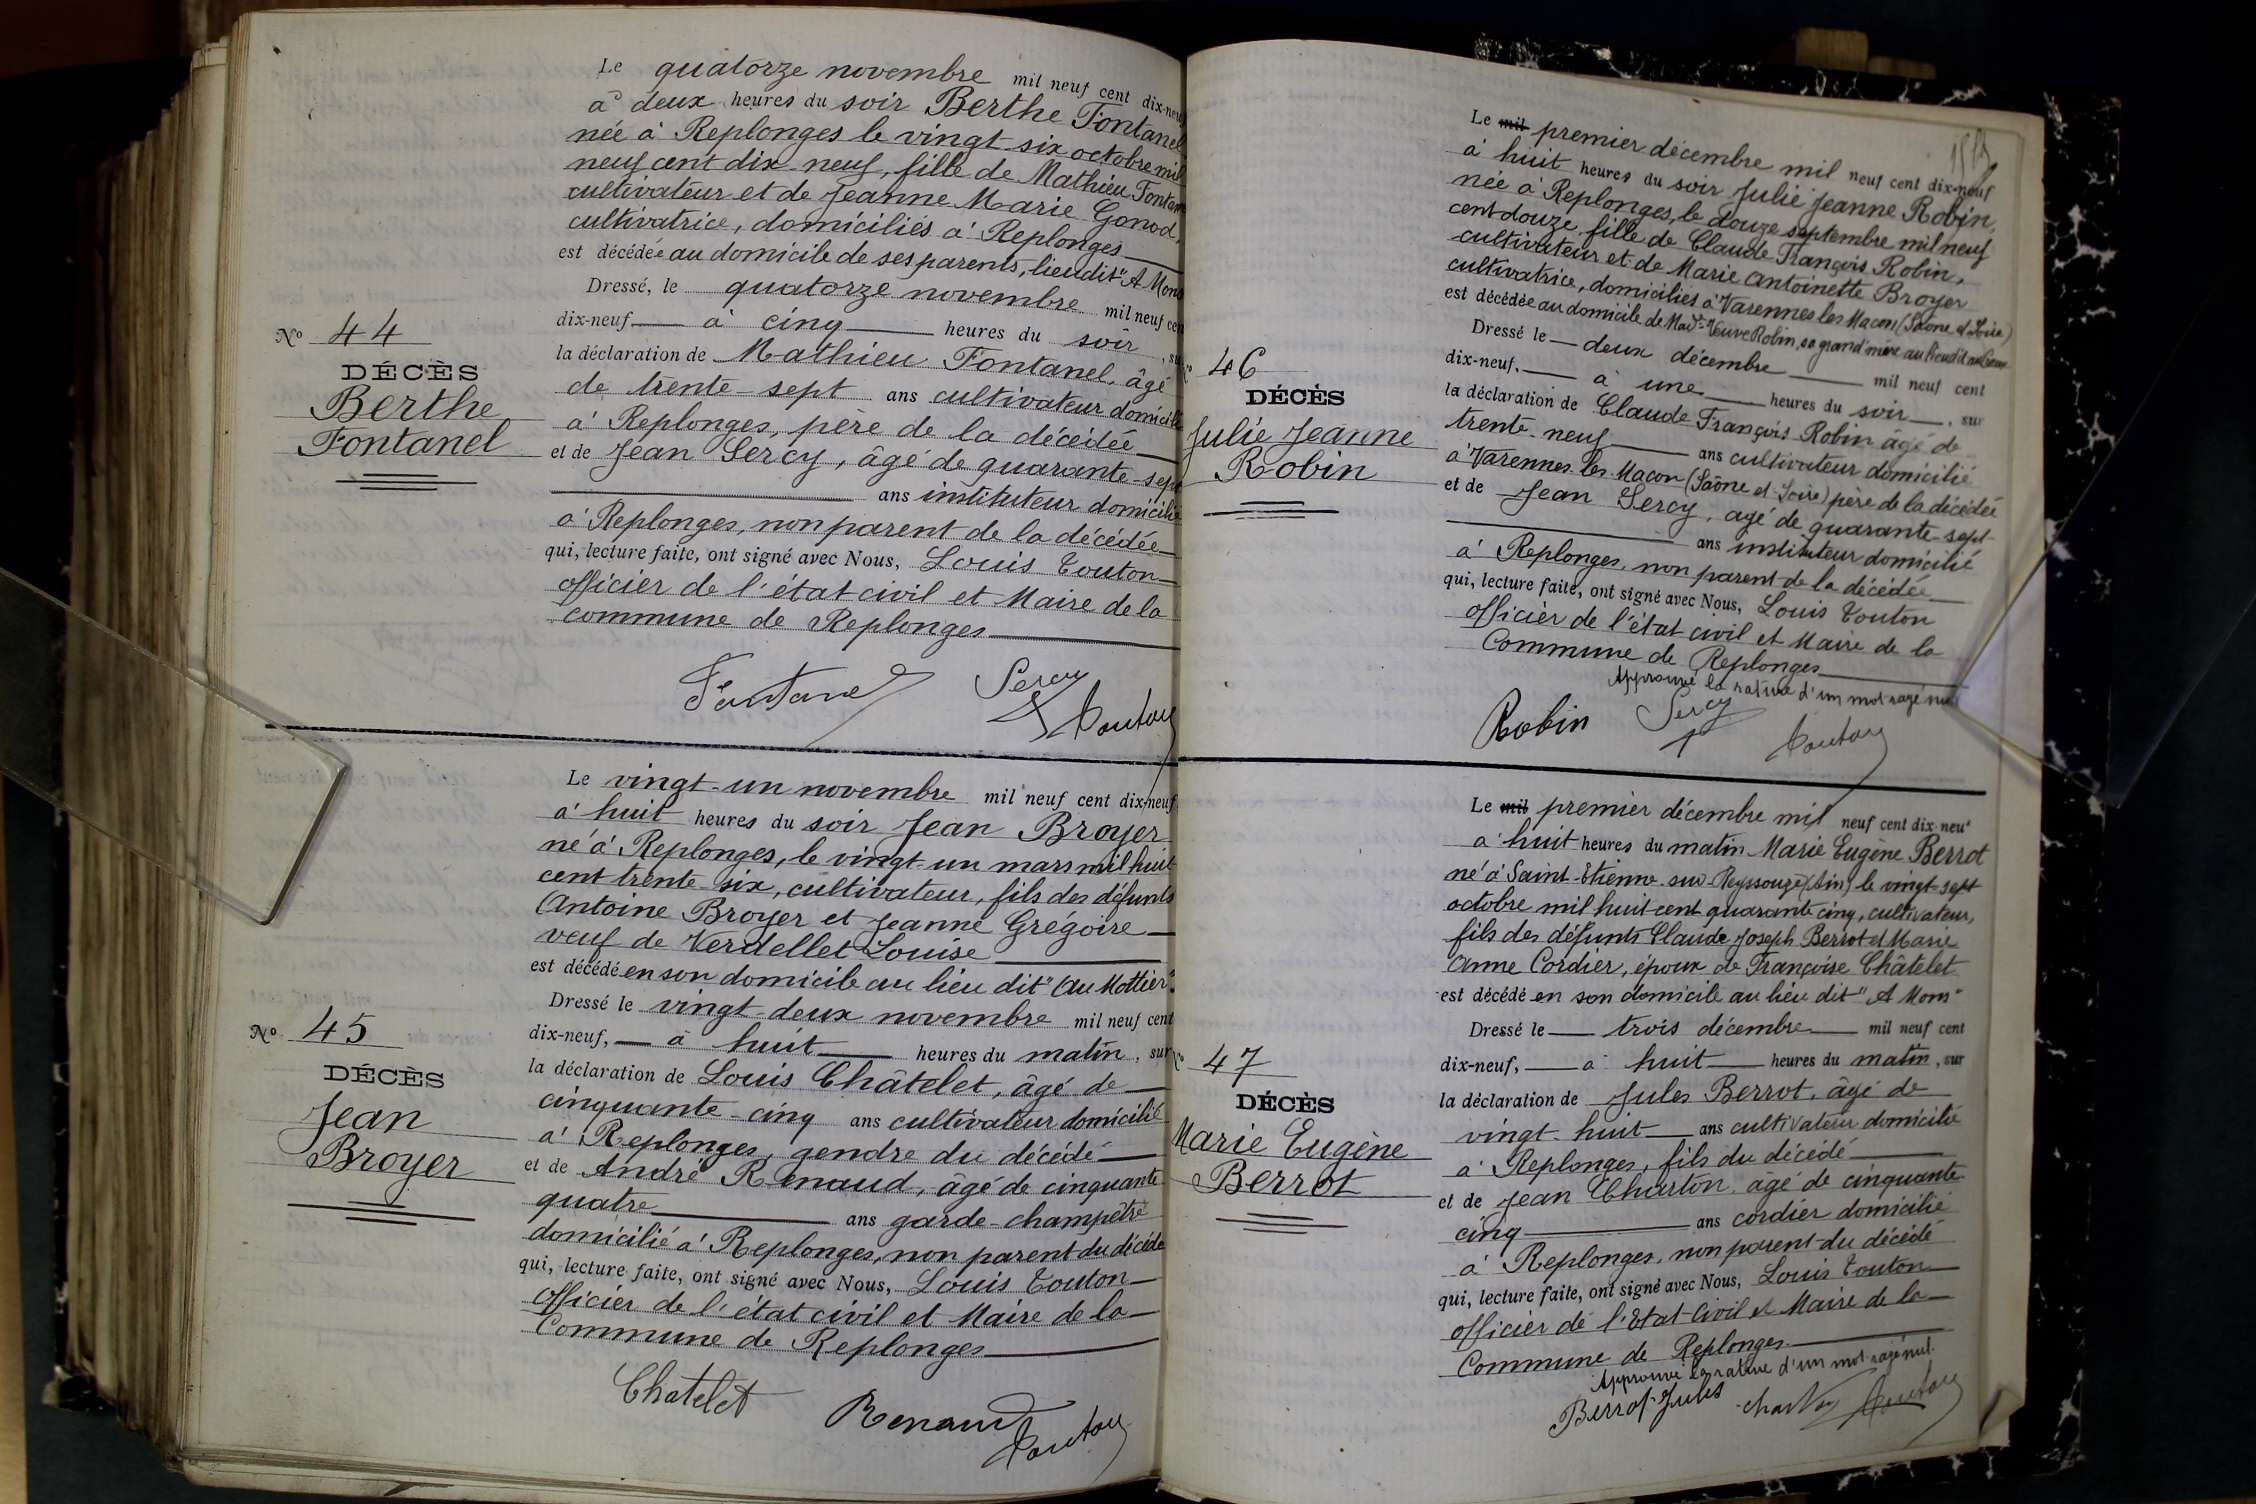 Le quatorze novembre mil neuf cent dix-neuf
à deux heures du soir Berthe Fontanel
née à Replonges le vingt six octobre mil
neuf cent dix-neuf, fille de Mathieu Fontanel
cultivateur et de Jeanne Marie Gonod,
cultivatrice, domiciliés à Replonges
est décédée au domicile de ses parents, lieu dit "A Mons
Dressé, le quatorze novembre mil neuf cent
dix-neuf à cinq heures du soir, sur
la déclaration de Mathieu Fontanel, âgé
de trente-sept ans cultivateur domicilié
à Replonges, père de la décédée
et de Jean Sercy, âgé de quarante-sept
ans instituteur domicilié
à Replonges, non parent de la décédée
qui, lecture faite, ont signé avec Nous, Louis Touton
officier de l'état civil et Maire de la
commune de Replonges
Fontanel Sercy Touton
No 44
DÉCÈS
Berthe
Fontanel
Le vingt-un novembre mil neuf cent dix-neuf
à huit heures du soir Jean Broyer
né à Replonges, le vingt-un mars mil huit
cent trente-six, cultivateur, fils des défunts
Antoine Broyer et Jeanne Grégoire
veuf de Verdellet Louise
est décédé en son domicile au lieu dit "Au Mottier"
Dressé le vingt-deux novembre mil neuf cent
dix-neuf, à huit heures du matin, sur
la déclaration de Louis Châtelet, âgé de
cinquante-cinq ans cultivateur domicilié
à Replonges, gendre du décédé
et de André Renaud, âgé de cinquante
quatre ans garde-champêtre
domicilié à Replonges, non parent du décédé
qui, lecture faite, ont signé avec Nous, Louis Touton
officier de l'état civil et Maire de la
Commune de Replonges
Chatelet Renaud Touton
No 45
DÉCÈS
Jean
Broyer
Le mil premier décembre mil neuf cent dix-neuf
à huit heures du soir Julie Jeanne Robin,
née à Replonges, le douze septembre mil neuf
cent douze, fille de Claude François Robin,
cultivateur et de Marie Antoinette Broyer
cultivatrice, domiciliés à Varennes les Macon (Saône et Loire)
est décédée au domicile de Mad. Veuve Robin, sa grand'mère au lieu dit
Dressé le deux décembre mil neuf cent
dix-neuf, à une heures du soir, sur
la déclaration de Claude François Robin âgé de
trente-neuf ans cultivateur domicilié
à Varennes les Macon (Saône et Loire) père de la décédée
et de Jean Sercy, agé de quarante-sept
ans instituteur domicilié
à Replonges, non parent de la décédée
qui, lecture faite, ont signé avec Nous, Louis Touton
officier de l'état civil et Maire de la
Commune de Replonges
Approuvé la rature d'un mot rayé nul
Robin Sercy Touton
46
DÉCÈS
Julie Jeanne
Robin
Le mil premier décembre mil neuf cent dix-neuf
à huit heures du matin Marie Eugène Berrot
né à Saint-Etienne-sur-Reyssouze (Ain) le vingt-sept
octobre mil huit cent quarante cinq, cultivateur,
fils des défunts Claude Joseph Berrot et Marie
Anne Cordier, époux de Françoise Châtelet
est décédé en son domicile au lieu dit "A Mons"
Dressé le trois décembre mil neuf cent
dix-neuf, à huit heures du matin, sur
la déclaration de Jules Berrot, âgé de
vingt-huit ans cultivateur domicilié
à Replonges, fils du décédé
et de Jean Charton, âgé de cinquante
cinq ans cordier domicilié
à Replonges, non parent du décédé
qui, lecture faite, ont signé avec Nous, Louis Touton
officier de l'Etat-Civil et Maire de la
Commune de Replonges.
Approuvé la rature d'un mot rayé nul.
Berrot Jules Charton Touton
47
DÉCÈS
Marie Eugène
Berrot